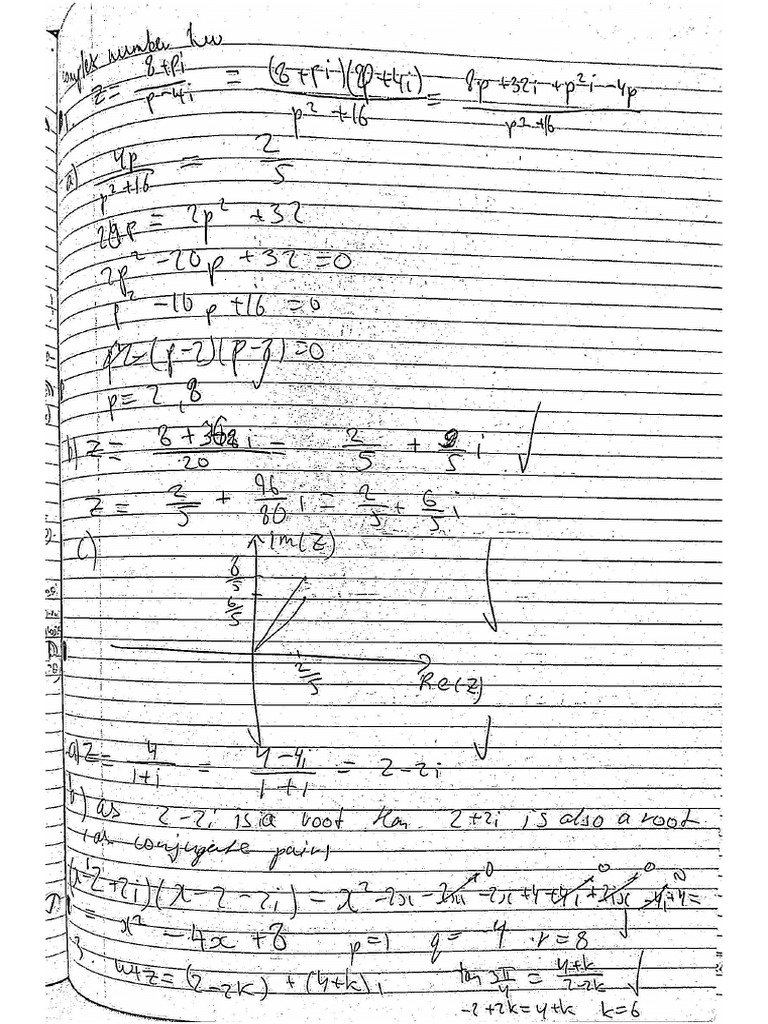 complex number hw
1. z = (8+pi)/(p-4i) = (8+pi)(p+4i)/(p²+16) = (8p+32i+p²i-4p)/(p²+16)
a) 4p/(p²+16) = 2/5
20p = 2p² + 32
2p² - 20p + 32 = 0
p² - 10p + 16 = 0
(p-2)(p-8) = 0
p = 2, 8
b) z = (8+36i)/20 = 2/5 + 9/5 i ✓
z = 2/5 + 96/80 i = 2/5 + 6/5 i
c) Im(z)
8/5
6/5
2/5
Re(z)
a) z = 4/(1+i) = (4-4i)/(1+1) = 2-2i
b) as 2-2i is a root then 2+2i is also a root
(as conjugate pair)
(x-2+2i)(x-2-2i) = x² - 2x - 2xi - 2x + 4 + 4i + 2ix - 4i + 4 =
= x² - 4x + 8 p=1 q=-4 r=8 ✓
3. w+z = (2-2k) + (4+k)i tan 3π/4 = (4+k)/(2-2k) ✓
-2+2k = 4+k k=6